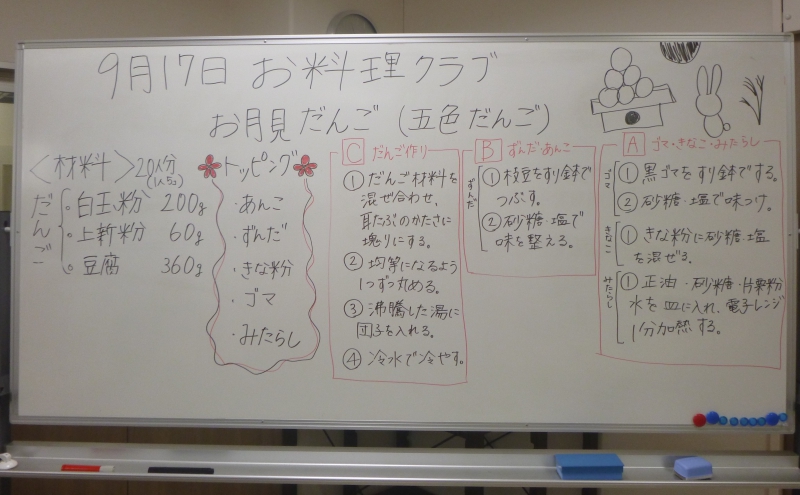 9月17日 お料理クラブ
お月見だんご(五色だんご)
<材料>20人分
(1人5コ)
だんご
白玉粉 200g
上新粉 60g
豆腐 360g
トッピング
・あんこ
・ずんだ
・きな粉
・ゴマ
・みたらし
C だんご作り
①だんご材料を
混ぜ合わせ、
耳たぶのかたさに
塊りにする。
②均等になるよう
1つずつ丸める。
③沸騰した湯に
団子を入れる。
④冷水で冷やす。
B ずんだ・あんこ
ずんだ
①枝豆をすり鉢で
つぶす。
②砂糖・塩で
味を整える。
A ゴマ・きなこ・みたらし
ゴマ
①黒ゴマをすり鉢でする。
②砂糖・塩で味つけ。
きなこ
①きな粉に砂糖・塩
を混ぜる。
みたらし
①正油・砂糖・片栗粉
水を皿に入れ、電子レンジ
1分加熱する。